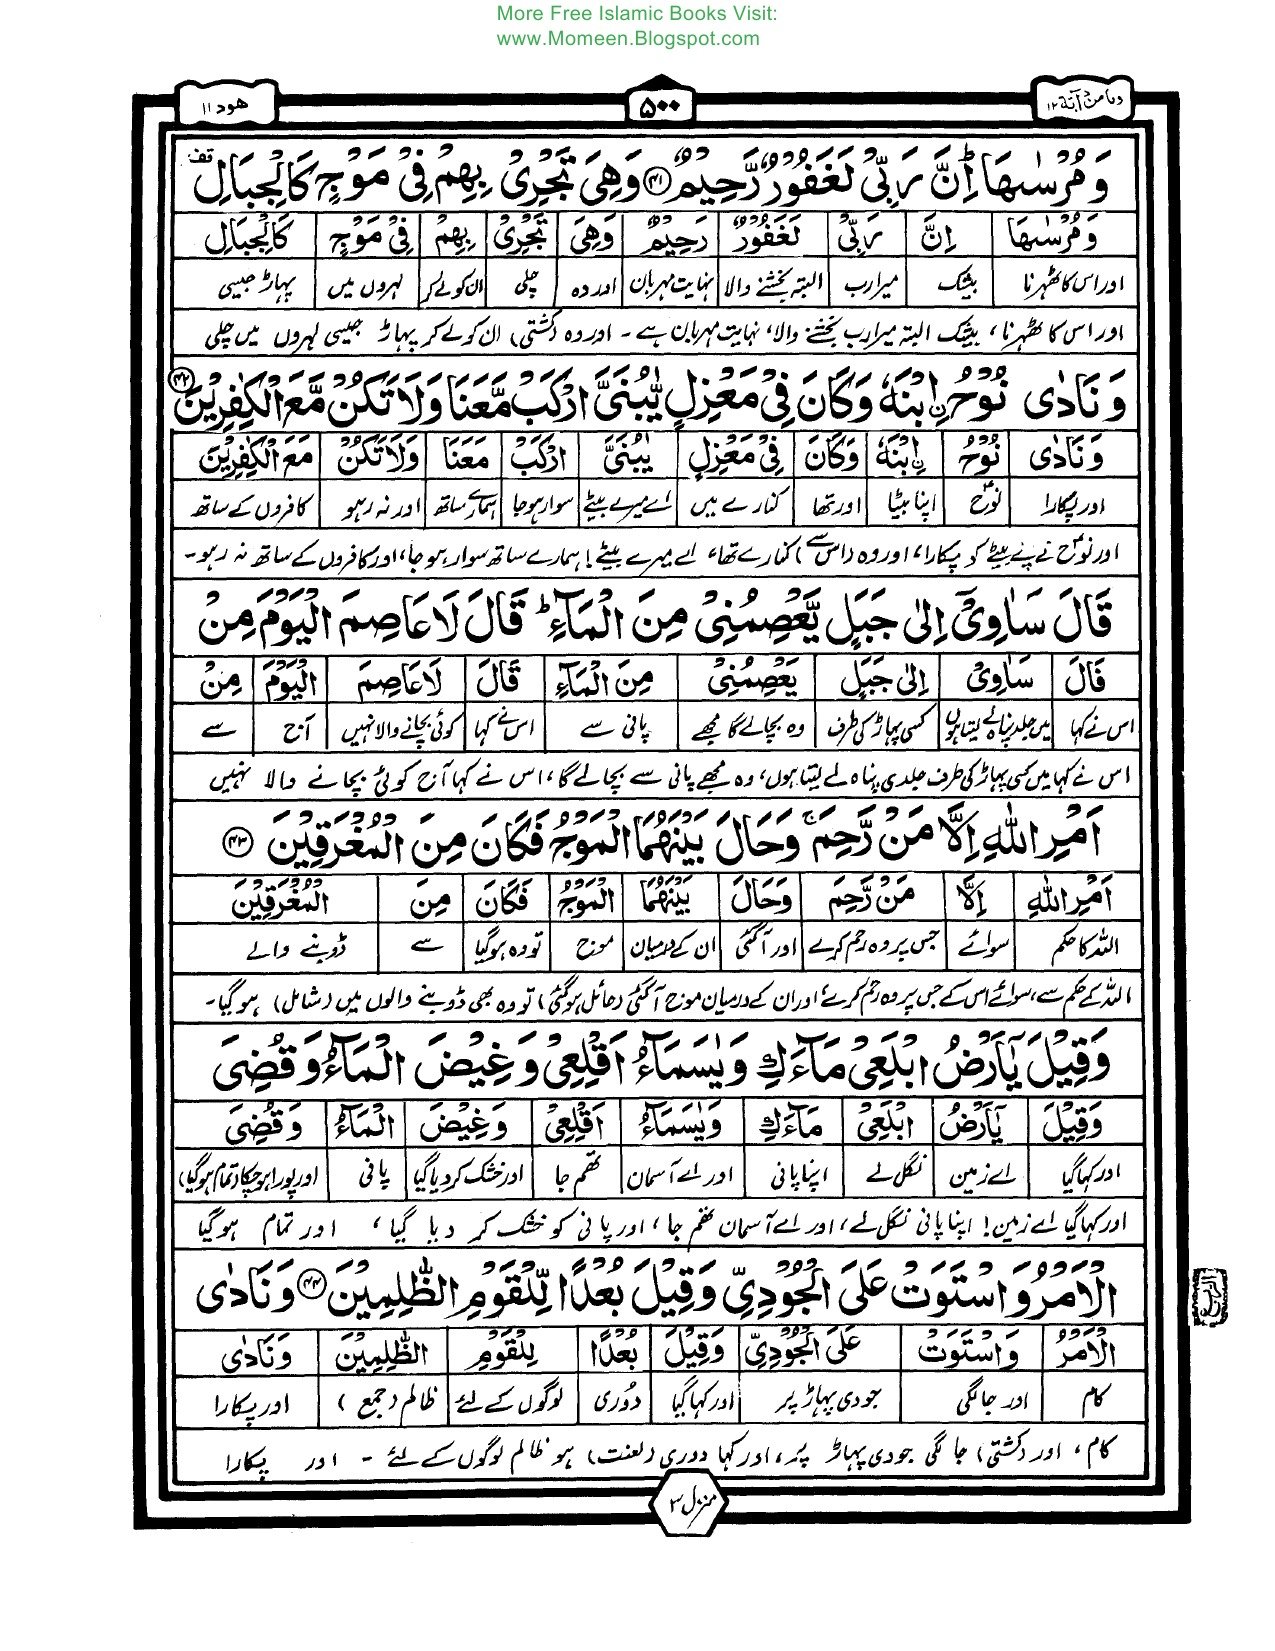 More Free Islamic Books Visit:
www.Momeen.Blogspot.com
ومامن دآبة ۱۲
۵۰۰
هود ۱۱
وَمُرْسٰىهَا ؕ اِنَّ رَبِّیْ لَغَفُوْرٌ رَّحِیْمٌ ﴿۴۱﴾ وَهِیَ تَجْرِیْ بِهِمْ فِیْ مَوْجٍ كَالْجِبَالِ قف
وَمُرْسٰىهَا اِنَّ رَبِّیْ لَغَفُوْرٌ رَحِیْمٌ وَهِیَ تَجْرِیْ بِهِمْ فِیْ مَوْجٍ كَالْجِبَالِ
اور اس کا ٹھہرنا بیشک میرا رب البتہ بخشنے والا نہایت مہربان اور وہ چلی ان کو لے کر لہروں میں پہاڑ جیسی
اور اس کا ٹھہرنا، بیشک البتہ میرا رب بخشنے والا، نہایت مہربان ہے ۔ اور وہ (کشتی) ان کو لے کر پہاڑ جیسی لہروں میں چلی
وَنَادٰى نُوْحُ ِۨابْنَهٗ وَكَانَ فِیْ مَعْزِلٍ یّٰبُنَیَّ ارْكَبْ مَّعَنَا وَلَا تَكُنْ مَّعَ الْكٰفِرِیْنَ ﴿۴۲﴾
وَنَادٰى نُوْحُ ِۨابْنَهٗ وَكَانَ فِیْ مَعْزِلٍ یٰبُنَیَّ ارْكَبْ مَعَنَا وَلَا تَكُنْ مَعَ الْكٰفِرِیْنَ
اور پکارا نوحؑ اپنا بیٹا اور تھا کنارے میں اے میرے بیٹے سوار ہو جا ہمارے ساتھ اور نہ رہو کافروں کے ساتھ
اور نوحؑ نے اپنے بیٹے کو پکارا، اور وہ (اس سے) کنارے تھا، اے میرے بیٹے! ہمارے ساتھ سوار ہو جا، اور کافروں کے ساتھ نہ رہو۔
قَالَ سَاٰوِیْۤ اِلٰى جَبَلٍ یَّعْصِمُنِیْ مِنَ الْمَآءِ ؕ قَالَ لَا عَاصِمَ الْیَوْمَ مِنْ
قَالَ سَاٰوِیْ اِلٰى جَبَلٍ یَعْصِمُنِیْ مِنَ الْمَآءِ قَالَ لَا عَاصِمَ الْیَوْمَ مِنْ
اس نے کہا میں جلد پناہ لے لیتا ہوں کسی پہاڑ کی طرف وہ بچالے گا مجھے پانی سے اس نے کہا کوئی بچانے والا نہیں آج سے
اس نے کہا میں کسی پہاڑ کی طرف جلدی پناہ لے لیتا ہوں، وہ مجھے پانی سے بچالے گا، اس نے کہا آج کوئی بچانے والا نہیں
اَمْرِ اللّٰهِ اِلَّا مَنْ رَّحِمَ ۚ وَحَالَ بَیْنَهُمَا الْمَوْجُ فَكَانَ مِنَ الْمُغْرَقِیْنَ ﴿۴۳﴾
اَمْرِ اللّٰهِ اِلَّا مَنْ رَّحِمَ وَحَالَ بَیْنَهُمَا الْمَوْجُ فَكَانَ مِنَ الْمُغْرَقِیْنَ
اللہ کا حکم سوائے جس پر وہ رحم کرے اور آگئی ان کے درمیان موج تو وہ ہو گیا سے ڈوبنے والے
اللہ کے حکم سے، سوائے اس کے جس پر وہ رحم کرے اور ان کے درمیان موج آگئی (حائل ہو گئی) تو وہ بھی ڈوبنے والوں میں (شامل) ہو گیا۔
وَقِیْلَ یٰۤاَرْضُ ابْلَعِیْ مَآءَكِ وَیٰسَمَآءُ اَقْلِعِیْ وَغِیْضَ الْمَآءُ وَقُضِیَ
وَقِیْلَ یٰۤاَرْضُ ابْلَعِیْ مَآءَكِ وَیٰسَمَآءُ اَقْلِعِیْ وَغِیْضَ الْمَآءُ وَقُضِیَ
اور کہا گیا اے زمین نگل لے اپنا پانی اور اے آسمان تھم جا اور خشک کر دیا گیا پانی اور پورا ہو چکا (تمام ہو گیا)
اور کہا گیا اے زمین! اپنا پانی نگل لے، اور اے آسمان تھم جا، اور پانی کو خشک کر دیا گیا، اور تمام ہو گیا
الْاَمْرُ وَاسْتَوَتْ عَلَى الْجُوْدِیِّ وَقِیْلَ بُعْدًا لِّلْقَوْمِ الظّٰلِمِیْنَ ﴿۴۴﴾ وَنَادٰى
الْاَمْرُ وَاسْتَوَتْ عَلَى الْجُوْدِیِّ وَقِیْلَ بُعْدًا لِلْقَوْمِ الظّٰلِمِیْنَ وَنَادٰى
کام اور جا لگی جودی پہاڑ پر اور کہا گیا دُوری لوگوں کے لئے ظالم (جمع) اور پکارا
کام، اور (کشتی) جا لگی جودی پہاڑ پر، اور کہا دوری (لعنت) ہو ظالم لوگوں کے لئے ۔ اور پکارا
منزل ۳